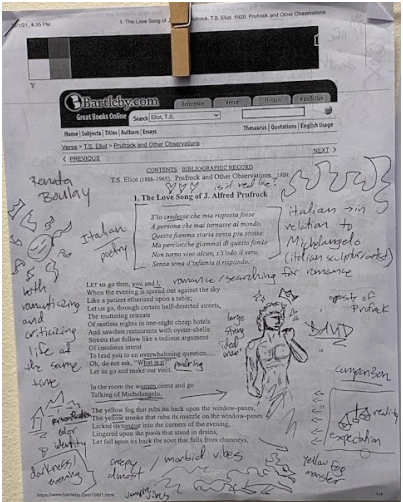 1. The Love Song of J. Alfred Prufrock, T.S. Eliot. 1920. Prufrock and Other Observations
4:35 PM
Bartleby.com
Great Books Online
Reference
Verse
Fiction
Nonfiction
Search Eliot, T.S.
Home | Subjects | Titles | Authors | Essays
Thesaurus | Quotations | English Usage
Verse > T.S. Eliot > Prufrock and Other Observations
< PREVIOUS
NEXT >
CONTENTS · BIBLIOGRAPHIC RECORD
T.S. Eliot (1888–1965). Prufrock and Other Observations. 1920.
Renata
Boulay
1. The Love Song of J. Alfred Prufrock
S'io credesse che mia risposta fosse
A persona che mai tornasse al mondo,
Questa fiamma staria senza piu scosse.
Ma perciocche giammai di questo fondo
Non torno vivo alcun, s'i'odo il vero,
Senza tema d'infamia ti rispondo.
Italian
poetry
italian in
relation to
Michelangelo
(italian sculptor/artist)
romance/searching for romance
Let us go then, you and I,
When the evening is spread out against the sky
Like a patient etherized upon a table;
Let us go, through certain half-deserted streets,
The muttering retreats
Of restless nights in one-night cheap hotels
And sawdust restaurants with oyster-shells:
Streets that follow like a tedious argument
Of insidious intent
To lead you to an overwhelming question….
Oh, do not ask, "What is it?"
Let us go and make our visit.
both
romanticizing
and
criticizing
life at
the same
time
large
strong
"ideal
man"
of
Prufrock
DAVID
comparison
reality
expectation
In the room the women come and go
Talking of Michelangelo.
The yellow fog that rubs its back upon the window-panes,
The yellow smoke that rubs its muzzle on the window-panes
Licked its tongue into the corners of the evening,
Lingered upon the pools that stand in drains,
Let fall upon its back the soot that falls from chimneys,
color
identity
darkness/
evening
creepy / morbid vibes
almost
yellow fog
monster
https://www.bartleby.com/198/1.html
1/4